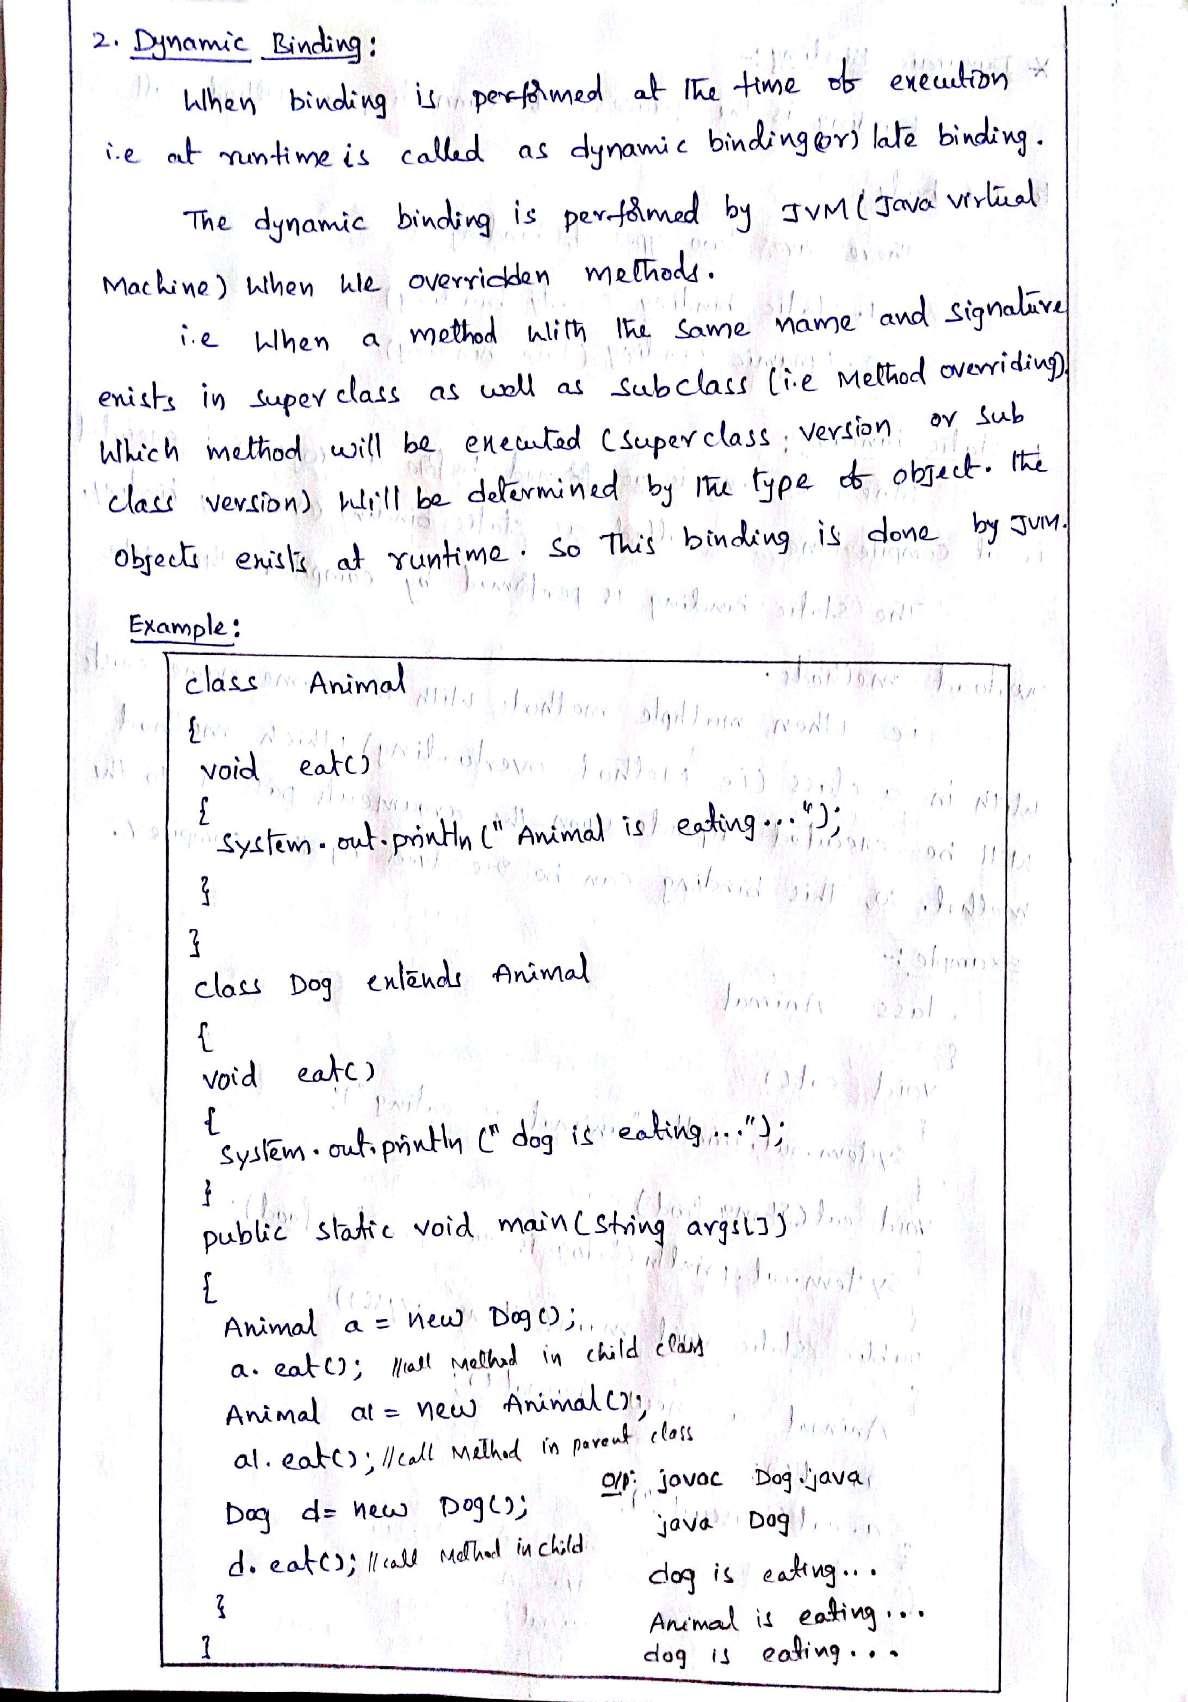 2. Dynamic Binding:
When binding is performed at the time of execution
i.e at runtime is called as dynamic binding (or) late binding.
The dynamic binding is performed by JVM (Java Virtual
Machine) When We overridden methods.
i.e When a method With the same name and signature
exists in super class as well as subclass (i.e Method overriding).
Which method will be executed (superclass version or sub
class version) Will be determined by the type of object. The
objects exists at runtime. So This binding is done by JVM.
Example:
class Animal
{
void eat()
{
System.out.println(" Animal is eating...");
}
}
class Dog extends Animal
{
void eat()
{
System.out.println (" dog is eating...");
}
public static void main(String args[])
{
Animal a = new Dog();
a.eat(); //call Method in child class
Animal a1 = new Animal();
a1.eat(); //call Method in parent class
Dog d= new Dog();
d.eat(); //call Method in child
}
}
O/P: javac Dog.java
java Dog
dog is eating...
Animal is eating...
dog is eating...